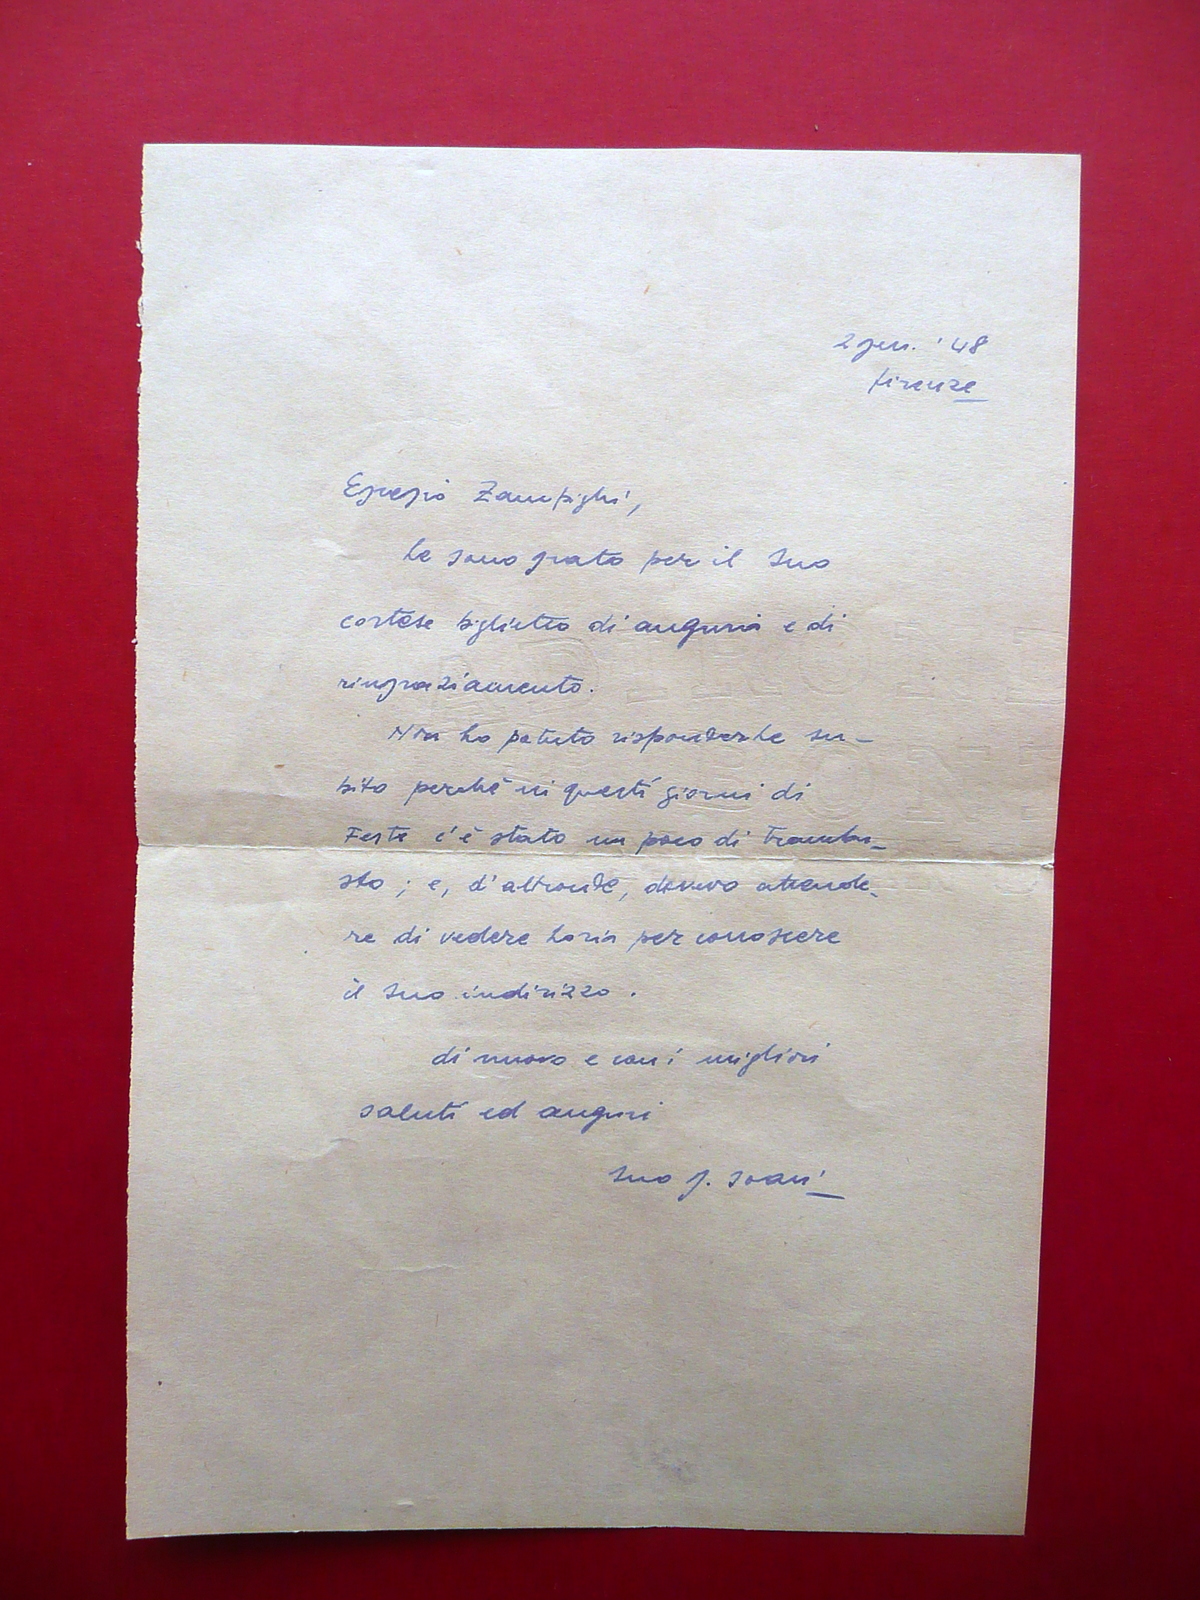 2 gen. '48
Firenze
Egregio Zampighi,
Le sono grato per il Suo
cortese biglietto di augurio e di
ringraziamento.
Non ho potuto risponderLe su-
bito perché in questi giorni di
Feste c'è stato un poco di trambu-
sto; e, d'altronde, dovevo attende-
re di vedere Loria per conoscere
il Suo indirizzo.
di nuovo e con i migliori
saluti ed auguri
Suo